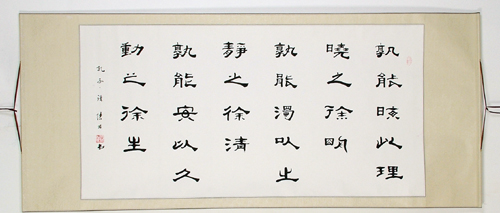 孰能晦以理
曉之徐明
孰能濁以止
靜之徐清
孰能安以久
動之徐生